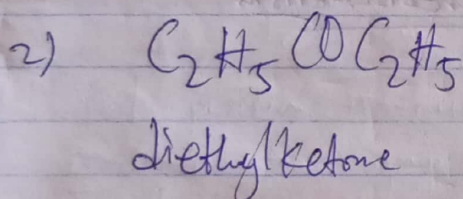 2) C₂H₅COC₂H₅
diethylketone